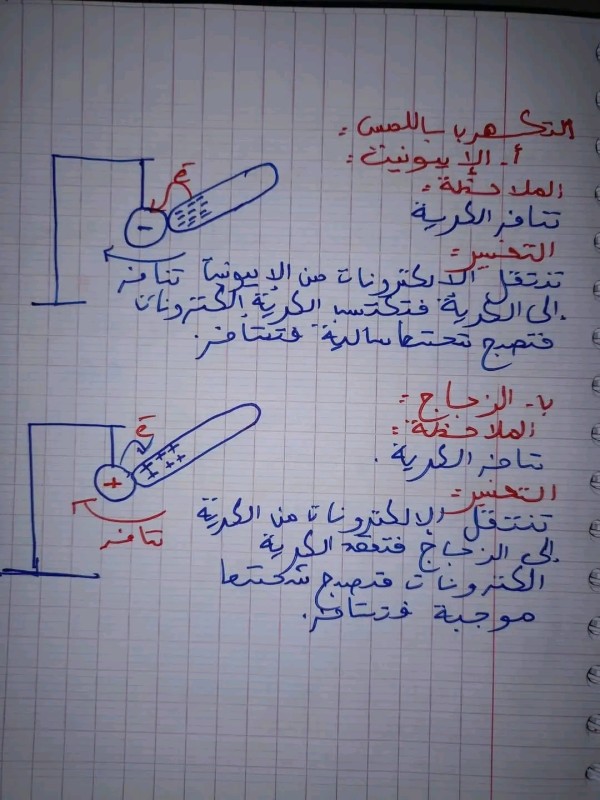 التكهرب باللمس:
أ- الإيبونيت:
الملاحظة:
تنافر الكرية
التفسير:
تنتقل الالكترونات من الإيبونيت
إلى الكرية فتكتسب الكرية إلكترونات
فتصبح شحنتها سالبة فتتنافر.
e-
-
تنافر
ب- الزجاج:
الملاحظة:
تنافر الكرية.
التفسير:
تنتقل الإلكترونات من الكرية
إلى الزجاج فتفقد الكرية
الكترونات فتصبح شحنتها
موجبة فتتنافر.
e-
+
تنافر